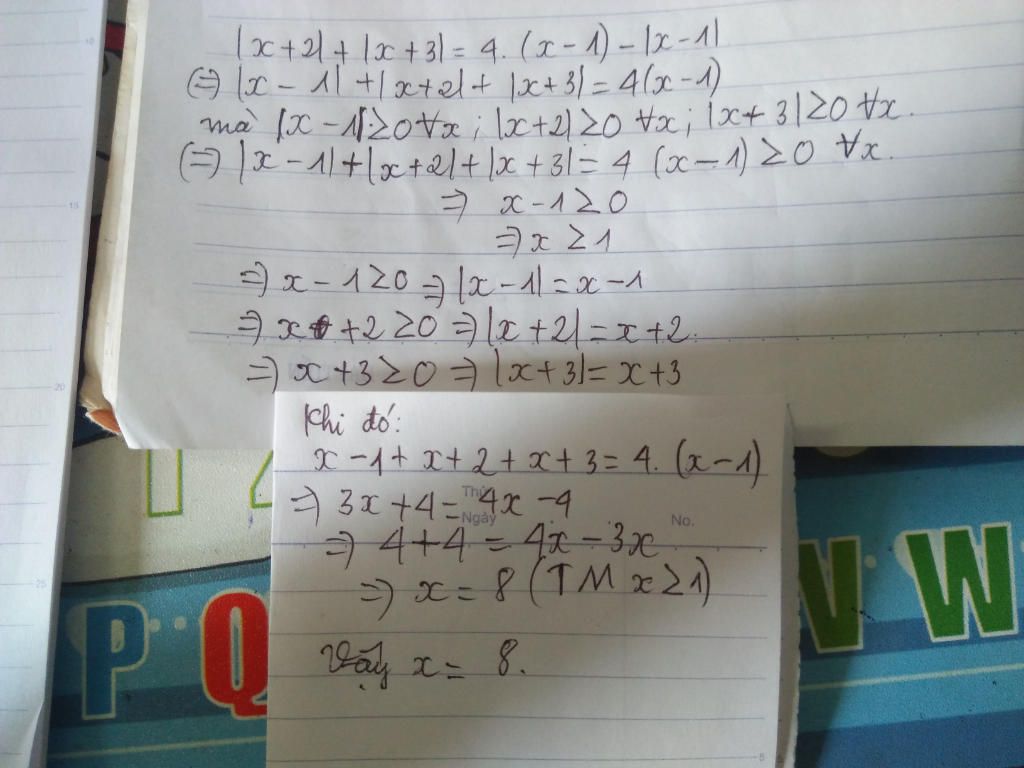 |x+2| + |x+3| = 4. (x-1) - |x-1|
(=) |x-1| + |x+2| + |x+3| = 4(x-1)
mà |x-1| ≥ 0 ∀x ; |x+2| ≥ 0 ∀x ; |x+3| ≥ 0 ∀x.
(=) |x-1| + |x+2| + |x+3| = 4 (x-1) ≥ 0 ∀x.
=) x-1 ≥ 0
=) x ≥ 1
=) x-1 ≥ 0 =) |x-1| = x-1
=) x +2 ≥ 0 =) |x+2| = x+2.
=) x+3 ≥ 0 =) |x+3| = x+3
Khi đó:
x-1+x+2+x+3 = 4. (x-1)
Thứ
=) 3x+4 = 4x-4
Ngày
No.
=) 4+4 = 4x-3x
=) x = 8 (TM x ≥ 1)
Vậy x = 8.
P Q V W
10
15
20
25
5